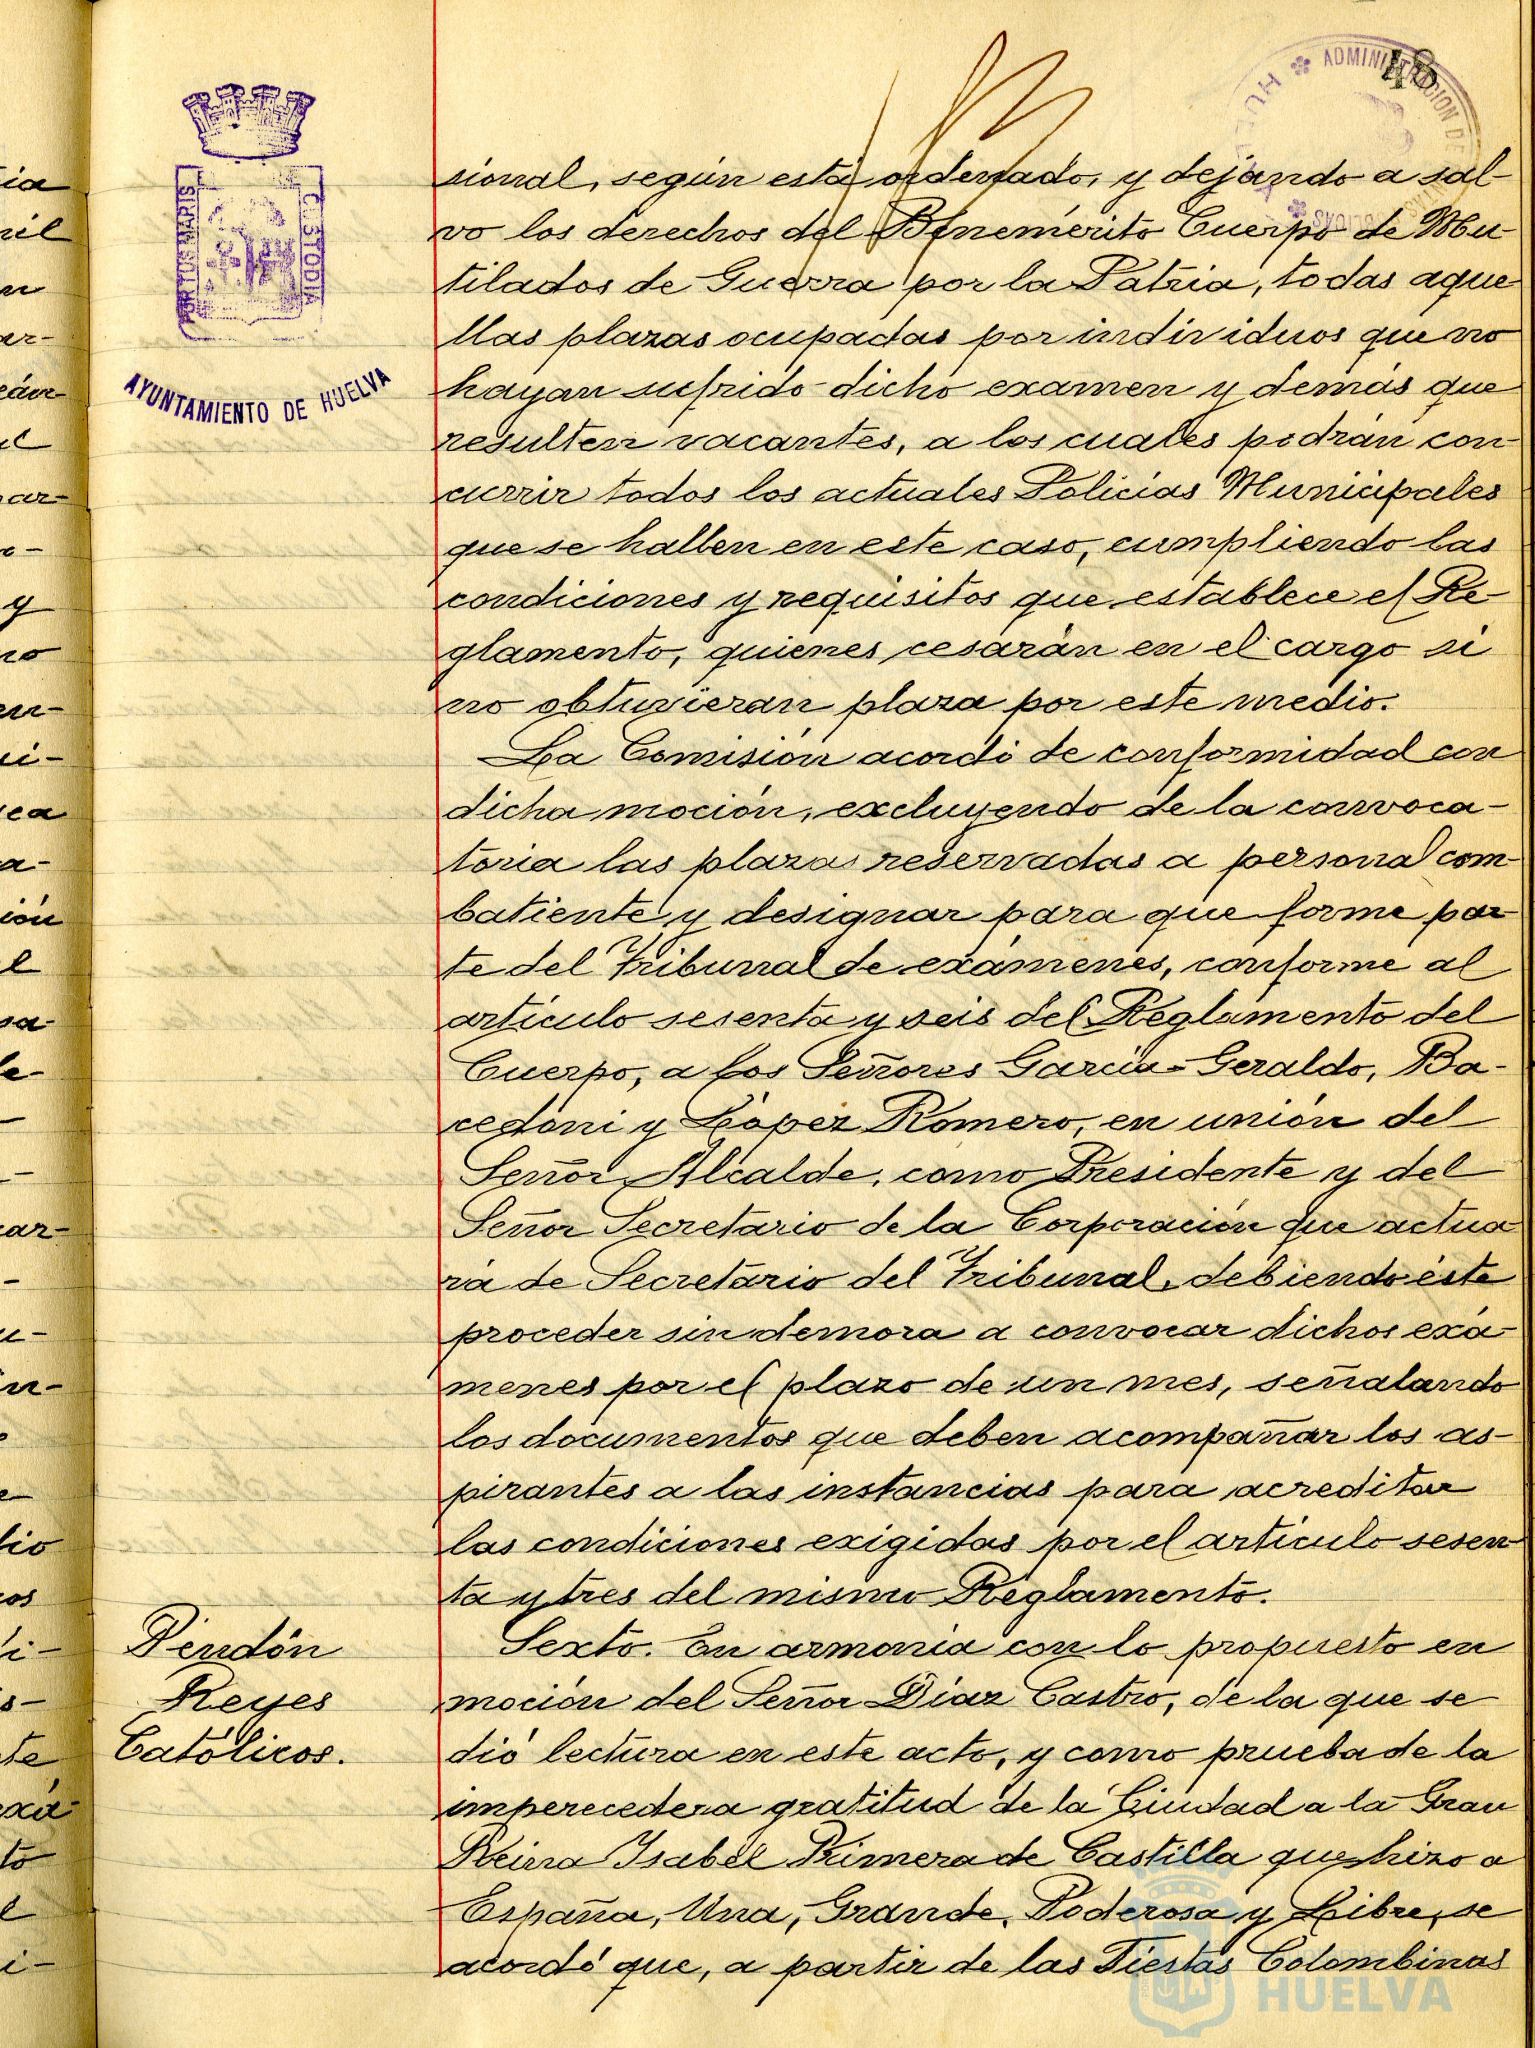 48
ADMINISTRACION DE
PORTUS MARIS
CUSTODIA
AYUNTAMIENTO DE HUELVA
sional, según está ordenado, y dejando a sal-
vo los derechos del Benemérito Cuerpo de Mu-
tilados de Guerra por la Patria, todas aque-
llas plazas ocupadas por individuos que no
hayan sufrido dicho examen y demás que
resulten vacantes, a los cuales podrán con-
currir todos los actuales Policías Municipales
que se hallen en este caso, cumpliendo las
condiciones y requisitos que establece el Re-
glamento, quienes cesarán en el cargo si
no obtuvieran plaza por este medio.
La Comisión acordó de conformidad con
dicha moción, excluyendo de la convoca-
toria las plazas reservadas a personal com-
batiente y designar para que forme par-
te del Tribunal de exámenes, conforme al
artículo sesenta y seis del Reglamento del
Cuerpo, a los Señores García-Geraldo, Ba-
cedoni y López Romero, en unión del
Señor Alcalde, como Presidente y del
Señor Secretario de la Corporación que actua-
rá de Secretario del Tribunal, debiendo éste
proceder sin demora a convocar dichos exá-
menes por el plazo de un mes, señalando
los documentos que deben acompañar los as-
pirantes a las instancias para acreditar
las condiciones exigidas por el artículo sesen-
ta y tres del mismo Reglamento.
Pendón
Reyes
Católicos.
Sexto. En armonía con lo propuesto en
moción del Señor Díaz Castro, de la que se
dió lectura en este acto, y como prueba de la
imperecedera gratitud de la Ciudad a la Gran
Reina Isabel Primera de Castilla que hizo a
España, Una, Grande, Poderosa y Libre, se
acordó que, a partir de las Fiestas Colombinas
HUELVA